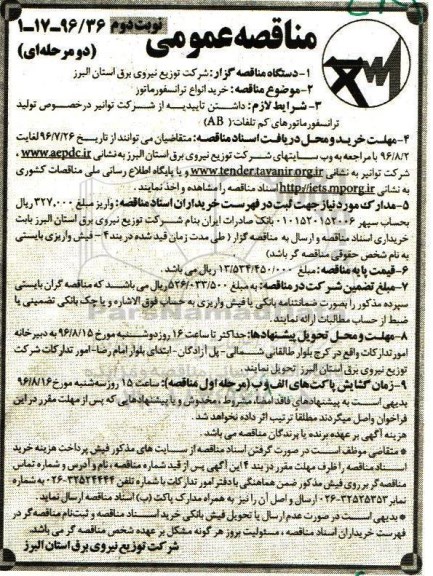 نوبت دوم
۱-۱۷-۹۶/۳۶
مناقصه عمومی
(دو مرحله‌ای)
۱-دستگاه مناقصه گزار: شرکت توزیع نیروی برق استان البرز
۲-موضوع مناقصه: خرید انواع ترانسفورماتور
۳- شرایط لازم: داشتن تاییدیه از شرکت توانیر درخصوص تولید
ترانسفورماتورهای کم تلفات( AB)
۴-مهلت خرید و محل دریافت اسناد مناقصه: متقاضیان می توانند از تاریخ ۹۶/۷/۲۶ لغایت
۹۶/۸/۲ با مراجعه به وب سایتهای شرکت توزیع نیروی برق استان البرز به نشانی www.aepdc.ir ،
شرکت توانیر به نشانی www.tender.tavanir.org.ir و یا پایگاه اطلاع رسانی ملی مناقصات کشوری
به نشانی http://iets.mporg.ir اسناد مناقصه را مشاهده و اخذ نمایند .
۵-مدارک مورد نیاز جهت ثبت در فهرست خریداران اسناد مناقصه: واریز مبلغ ۳۲۷.۰۰۰ ریال
بحساب سپهر ۰۱۰۱۵۲۰۱۵۲۰۰۶ بانک صادرات ایران بنام شرکت توزیع نیروی برق استان البرز بابت
خریداری اسناد مناقصه و ارسال به مناقصه گزار ( طی مدت زمان قید شده در بند ۴ - فیش واریزی بایستی
به نام شخص حقوقی مناقصه گر باشد)
۶-قیمت پایه مناقصه: مبلغ ۱۳/۵۳۴/۴۵۰/۰۰۰ ریال می باشد.
۷-مبلغ تضمین شرکت در مناقصه: به مبلغ ۵۳۶/۰۳۳/۵۰۰ ریال می باشند که مناقصه گران بایستی
سپرده مذکور را بصورت ضمانتنامه بانکی یا فیش واریزی به حساب فوق الاشاره و یا چک بانکی تضمینی یا
ضبط از حساب مطالبات ارائه نمایند.
۸-مهلت و محل تحویل پیشنهادها: حداکثر تا ساعت ۱۶ روز دوشنبه مورخ ۹۶/۸/۱۵ به دبیرخانه
امور تدارکات واقع در کرج بلوار طالقانی شمالی- پل آزادگان- ابتدای بلوار امام رضا- امور تدارکات شرکت
توزیع نیروی برق استان البرز تحویل نمایند.
۹-زمان گشایش پاکت های الف و ب (مرحله اول مناقصه): ساعت ۱۵ روز سه شنبه مورخ ۹۶/۸/۱۶
بدیهی است به پیشنهادهای فاقد امضا، مشروط، مخدوش و یا پیشنهادهایی که پس از مهلت مقرر در این
فراخوان واصل میگردند مطلقا ترتیب اثر داده نخواهد شد.
هزینه آگهی بر عهده برنده یا برندگان مناقصه می باشد.
* متقاضی موظف است در صورت گرفتن اسناد مناقصه از سایت های مذکور فیش پرداخت هزینه خرید
اسناد مناقصه را ظرف مهلت مقرر در بند ۴ این آگهی پس از قید شماره مناقصه ، نام و آدرس و شماره تماس
مناقصه گر بر روی فیش مذکور ضمن هماهنگی با دفتر امور تدارکات با شماره تلفن ۳۲۵۲۴۴۴۴-۰۲۶ به شماره
نمابر ۳۲۵۲۵۳۵۳-۰۲۶ ارسال و اصل آن را نیز به همراه مدارک پاکت (ب) اسناد مناقصه ارسال نماید.
* بدیهی است در صورت عدم ارسال یا تحویل فیش بانکی خرید اسناد مناقصه و ثبت نام مناقصه گر در
فهرست خریداران اسناد مناقصه ، مسئولیت بروز هر گونه مشکل بر عهده شخص مناقصه گر می باشد.
شرکت توزیع نیروی برق استان البرز